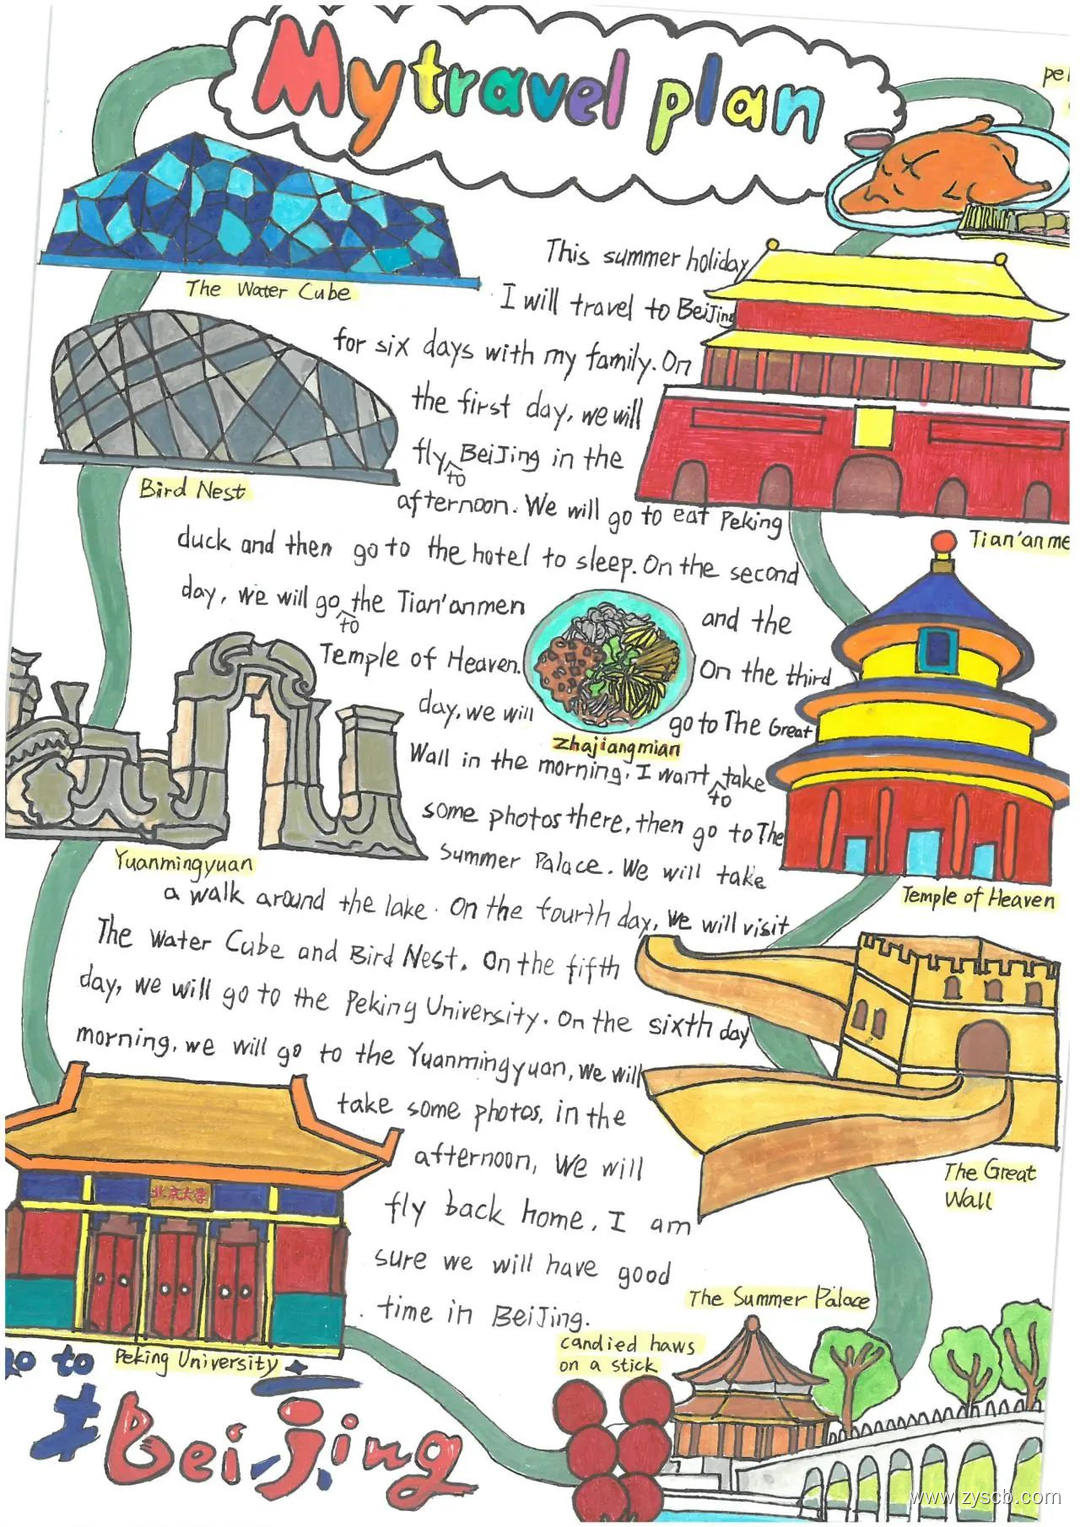 My travel plan
The Water Cube
This summer holiday
I will travel to BeiJing
for six days with my family. On
the first day, we will
fly to BeiJing in the
Bird Nest
afternoon. We will go to eat Peking
Tian'anme
duck and then go to the hotel to sleep. On the second
day, we will go to the Tian'anmen and the
Temple of Heaven. On the third
day, we will go to The Great
zhajiangmian
Wall in the morning, I want to take
some photos there, then go to The
Yuanmingyuan
Summer Palace. We will take
Temple of Heaven
a walk around the lake. On the fourth day, we will visit
The Water Cube and Bird Nest. On the fifth
day, we will go to the Peking University. On the sixth day
morning, we will go to the Yuanmingyuan, we will
take some photos, in the
afternoon, We will
The Great
Wall
fly back home. I am
北京大学
sure we will have good
time in BeiJing.
The Summer Palace
candied haws
on a stick
go to Peking University
#BeiJing
www.zyscb.com